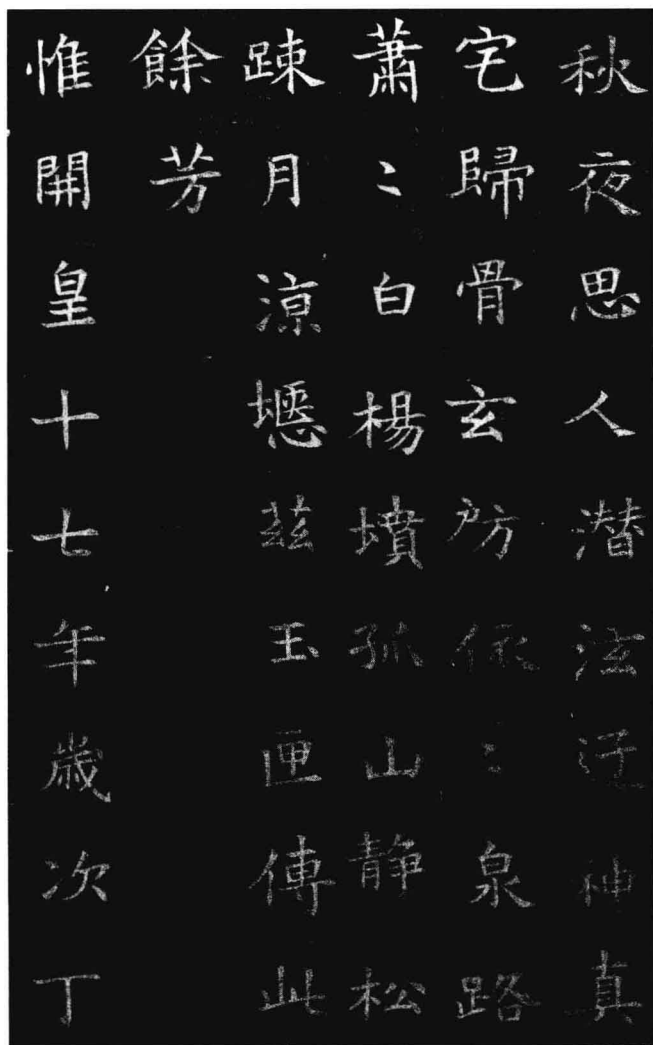 秋夜思人潜泫迁神真
宅歸骨玄房依〻泉路
蕭〻白楊墳孤山静松
踈月涼瘞茲玉匣傳此
餘芳
惟開皇十七年歳次丁